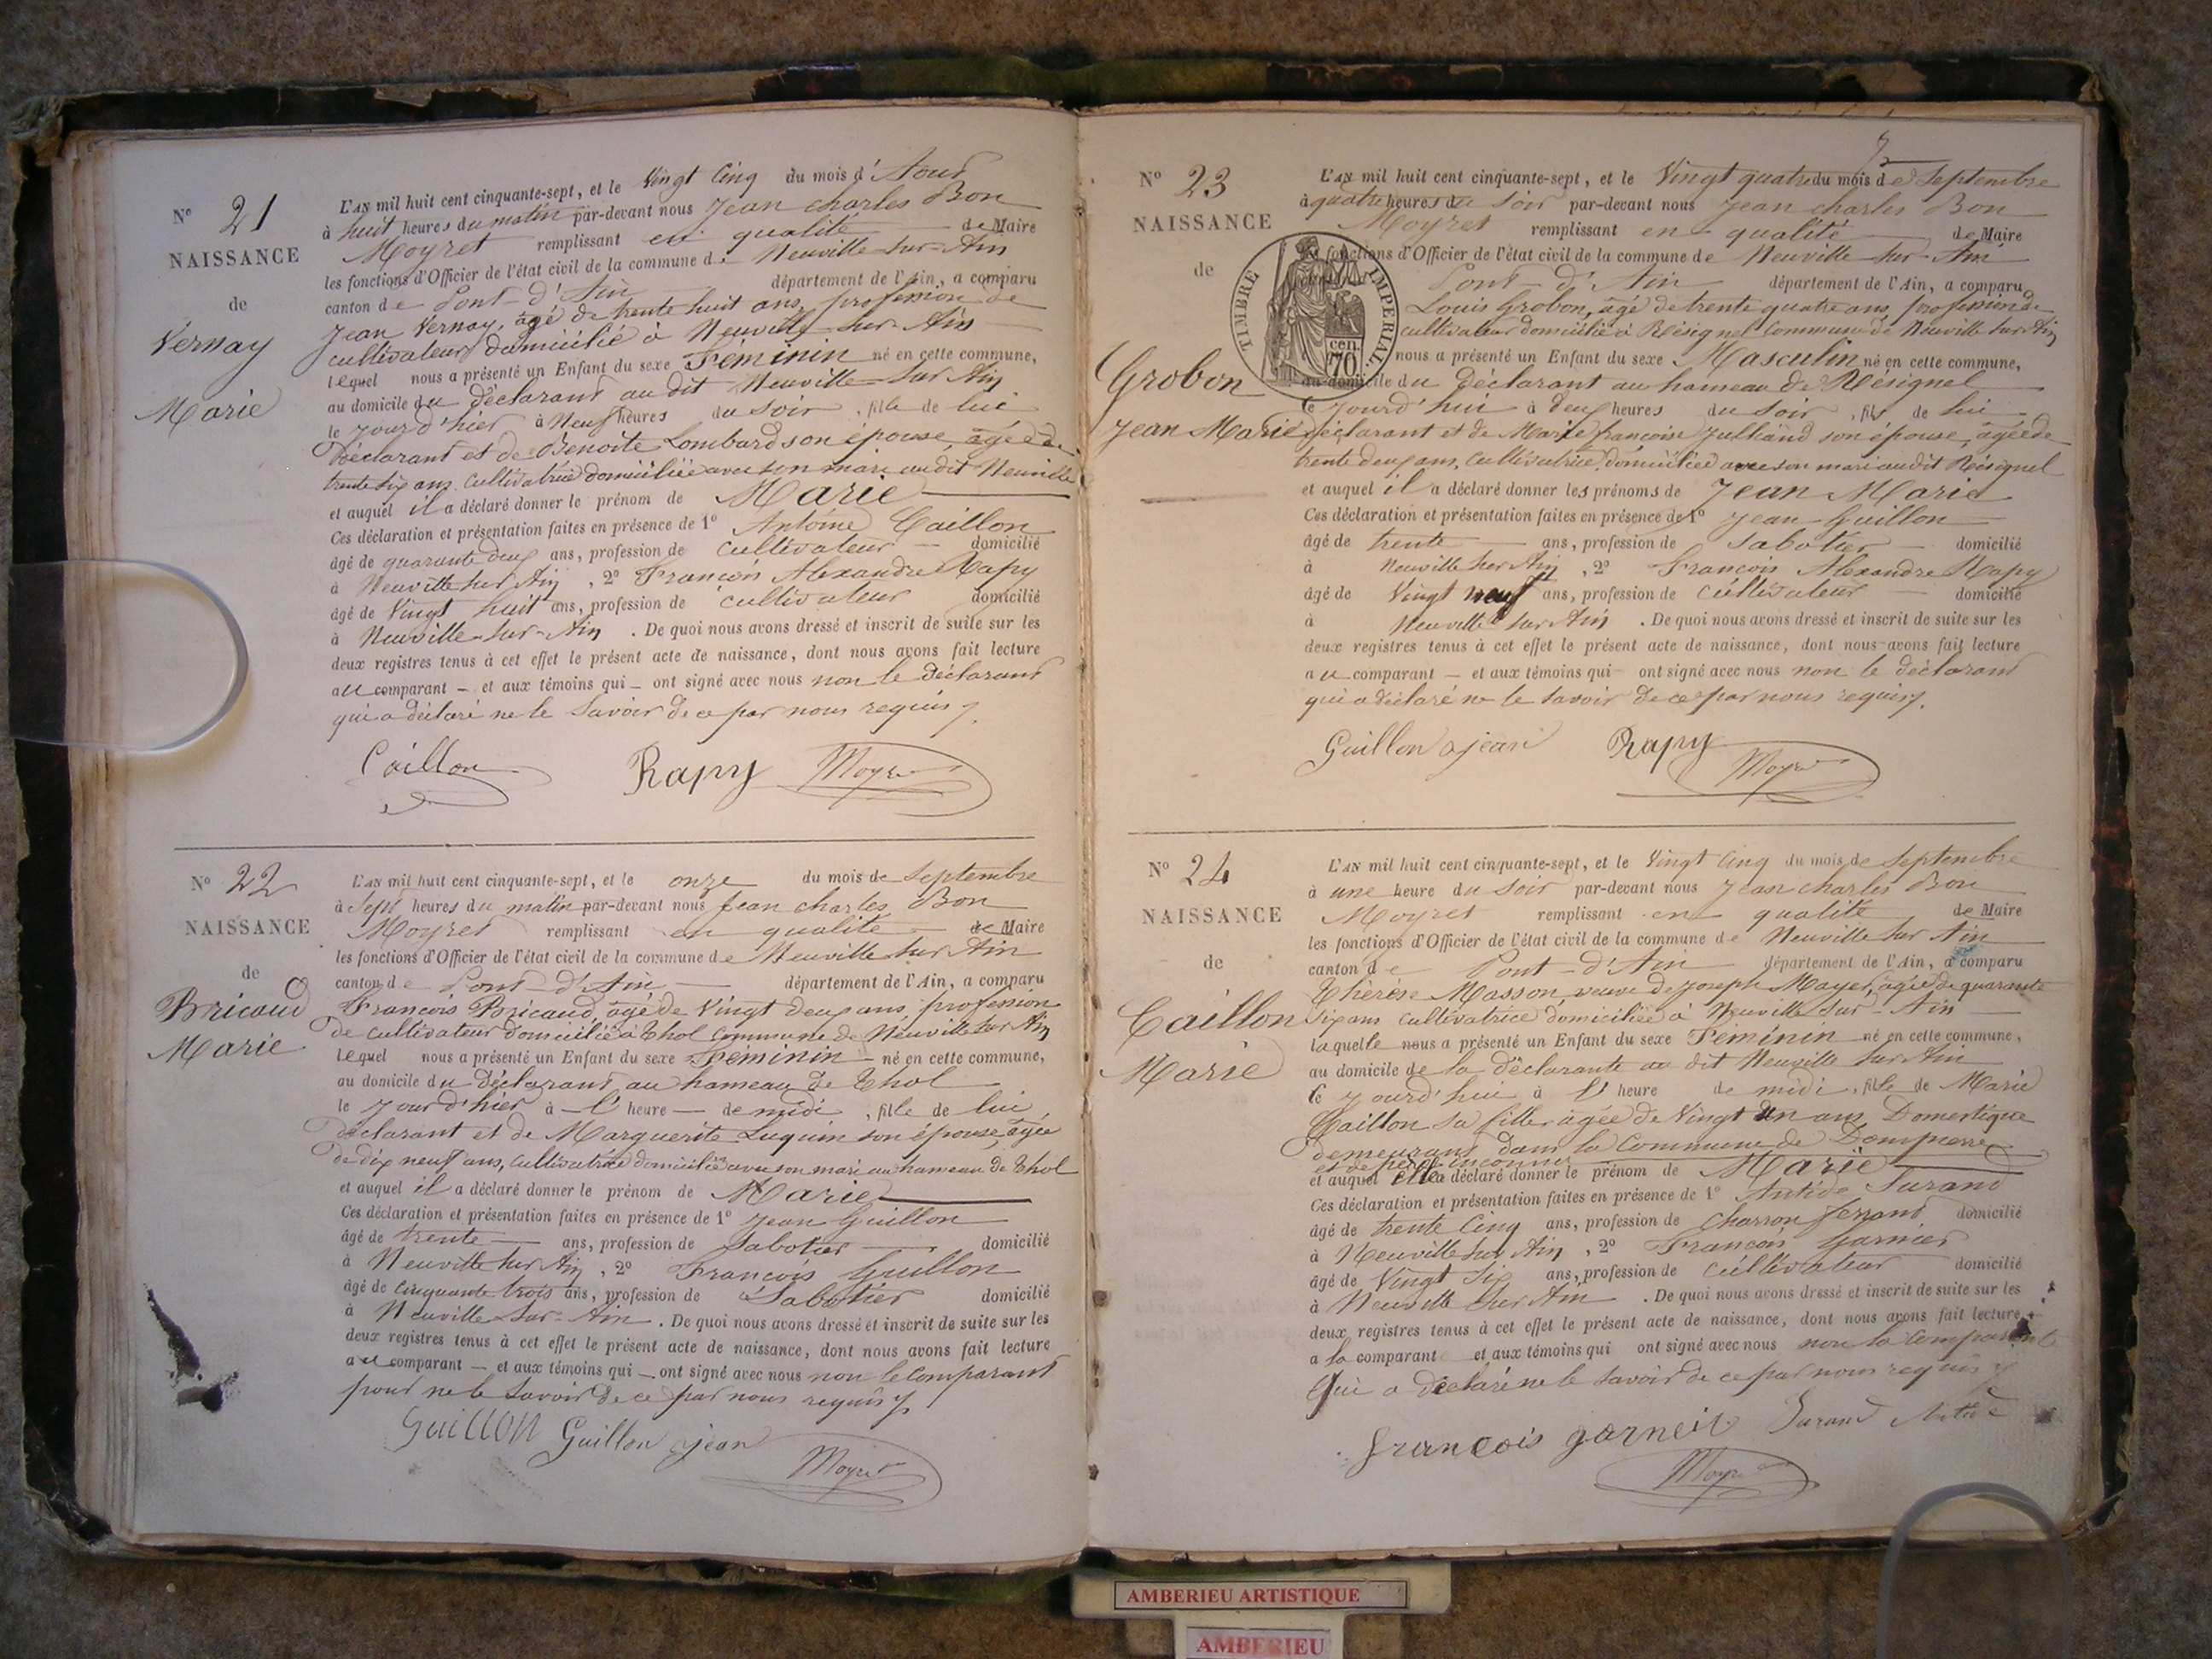 N° 21
NAISSANCE
de
Vernay
Marie
L'AN mil huit cent cinquante-sept, et le Vingt Cinq du mois d'Aout
à huit heures du matin par-devant nous Jean charles Bon
Moyret remplissant en qualité de Maire
les fonctions d'Officier de l'état civil de la commune de Neuville-sur-Ain
canton de Pont-d'Ain département de l'Ain, a comparu
Jean Vernay, âgé de trente huit ans, profession de
cultivateur domicilié à Neuville-sur-Ain
lequel nous a présenté un Enfant du sexe Féminin né en cette commune,
au domicile du déclarant au dit Neuville-sur Ain
le jour d'hier à Neuf heures du soir, fille de lui
Déclarant et de Benoite Lombard son épouse, âgée de
trente six ans cultivatrice domiciliée avec son mari au dit Neuville
et auquel il a déclaré donner le prénom de Marie
Ces déclaration et présentation faites en présence de 1° Antoine Caillon
âgé de quarante deux ans, profession de cultivateur domicilié
à Neuville sur Ain, 2° François Alexandre Rapy
âgé de Vingt huit ans, profession de cultivateur domicilié
à Neuville-sur-Ain. De quoi nous avons dressé et inscrit de suite sur les
deux registres tenus à cet effet le présent acte de naissance, dont nous avons fait lecture
au comparant - et aux témoins qui - ont signé avec nous non le Déclarant
qui a déclaré ne le savoir de ce par nous requis
Caillon Rapy Moyret
N° 22
NAISSANCE
de
Bricaud
Marie
L'AN mil huit cent cinquante-sept, et le onze du mois de Septembre
à Sept heures du matin par-devant nous Jean charles Bon
Moyret remplissant en qualité de Maire
les fonctions d'Officier de l'état civil de la commune de Neuville sur Ain
canton de Pont-d'Ain département de l'Ain, a comparu
François Bricaud, âgé de Vingt deux ans, profession
de cultivateur domicilié à Thol commune de Neuville sur Ain
lequel nous a présenté un Enfant du sexe Féminin né en cette commune,
au domicile du Déclarant au hameau de Thol
le jour d'hier à l'heure de midi, fille de lui
déclarant et de Marguerite Luquin son épouse, âgée
de dix neuf ans, cultivatrice domiciliée avec son mari au hameau de Thol
et auquel il a déclaré donner le prénom de Marie
Ces déclaration et présentation faites en présence de 1° Jean Guillon
âgé de trente ans, profession de Sabotier domicilié
à Neuville sur Ain, 2° François Guillon
âgé de cinquante trois ans, profession de Sabotier domicilié
à Neuville-sur-Ain. De quoi nous avons dressé et inscrit de suite sur les
deux registres tenus à cet effet le présent acte de naissance, dont nous avons fait lecture
au comparant - et aux témoins qui - ont signé avec nous non le Comparant
pour ne le savoir de ce par nous requis
Guillon Guillon jean
Moyret
7
N° 23
NAISSANCE
de
Grobon
Jean Marie
TIMBRE IMPERIAL
70 cen
L'AN mil huit cent cinquante-sept, et le Vingt quatre du mois de Septembre
à quatre heures du soir par-devant nous Jean charles Bon
Moyret remplissant en qualité de Maire
fonctions d'Officier de l'état civil de la commune de Neuville-sur-Ain
Pont-d'Ain département de l'Ain, a comparu
Louis Grobon, âgé de trente quatre ans, profession de
cultivateur domicilié à Résignel commune de Neuville sur Ain
nous a présenté un Enfant du sexe Masculin né en cette commune,
au domicile du Déclarant au hameau de Résignel
ce jourd'hui à deux heures du soir, fils de lui
déclarant et de Marie françoise Julliand son épouse, âgée de
trente deux ans, cultivatrice domiciliée avec son mari au dit Résignel
et auquel il a déclaré donner les prénoms de Jean Marie
Ces déclaration et présentation faites en présence de 1° Jean Guillon
âgé de trente ans, profession de Sabotier domicilié
à Neuville sur Ain, 2° François Alexandre Rapy
âgé de Vingt neuf ans, profession de cultivateur domicilié
à Neuville sur Ain. De quoi nous avons dressé et inscrit de suite sur les
deux registres tenus à cet effet le présent acte de naissance, dont nous avons fait lecture
au comparant - et aux témoins qui ont signé avec nous non le déclarant
qui a déclaré ne le savoir de ce par nous requis.
Guillon jean Rapy
Moyret
N° 24
NAISSANCE
de
Caillon
Marie
L'AN mil huit cent cinquante-sept, et le Vingt Cinq du mois de Septembre
à une heure du Soir par-devant nous Jean charles Bon
Moyret remplissant en qualité de Maire
les fonctions d'Officier de l'état civil de la commune de Neuville sur Ain
canton de Pont-d'Ain département de l'Ain, a comparu
Thérèse Masson, veuve de Joseph Mayer, âgée de quarante
six ans cultivatrice domiciliée à Neuville-sur-Ain
laquelle nous a présenté un Enfant du sexe Féminin né en cette commune,
au domicile de la déclarante au dit Neuville sur Ain
ce jourd'hui à l'heure de midi, fille de Marie
Caillon sa fille âgée de Vingt un ans, Domestique
demeurant dans la Commune de Dompierre
et de père inconnu
et auquel elle a déclaré donner le prénom de Marie
Ces déclaration et présentation faites en présence de 1° Antide Durand
âgé de trente Cinq ans, profession de Charron ferrant domicilié
à Neuville sur Ain, 2° François Garnier
âgé de Vingt Six ans, profession de cultivateur domicilié
à Neuville sur Ain. De quoi nous avons dressé et inscrit de suite sur les
deux registres tenus à cet effet le présent acte de naissance, dont nous avons fait lecture
a la comparante et aux témoins qui ont signé avec nous non la Comparante
Qui a déclaré ne le savoir de ce par nous requis
françois garneit Durand Antide
Moyret
AMBERIEU ARTISTIQUE
AMBERIEU